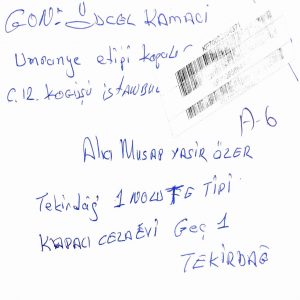 GÖN: ÜCEL KAMACI
Ümraniye etipi kapalı
C.12. KOĞUŞU İSTANBUL
A-6
Alıcı MUSAP YASİR ÖZER
Tekirdağ 1 NOLU F TİPİ
KAPACI CEZAEVİ Geç 1
TEKİRDAĞ